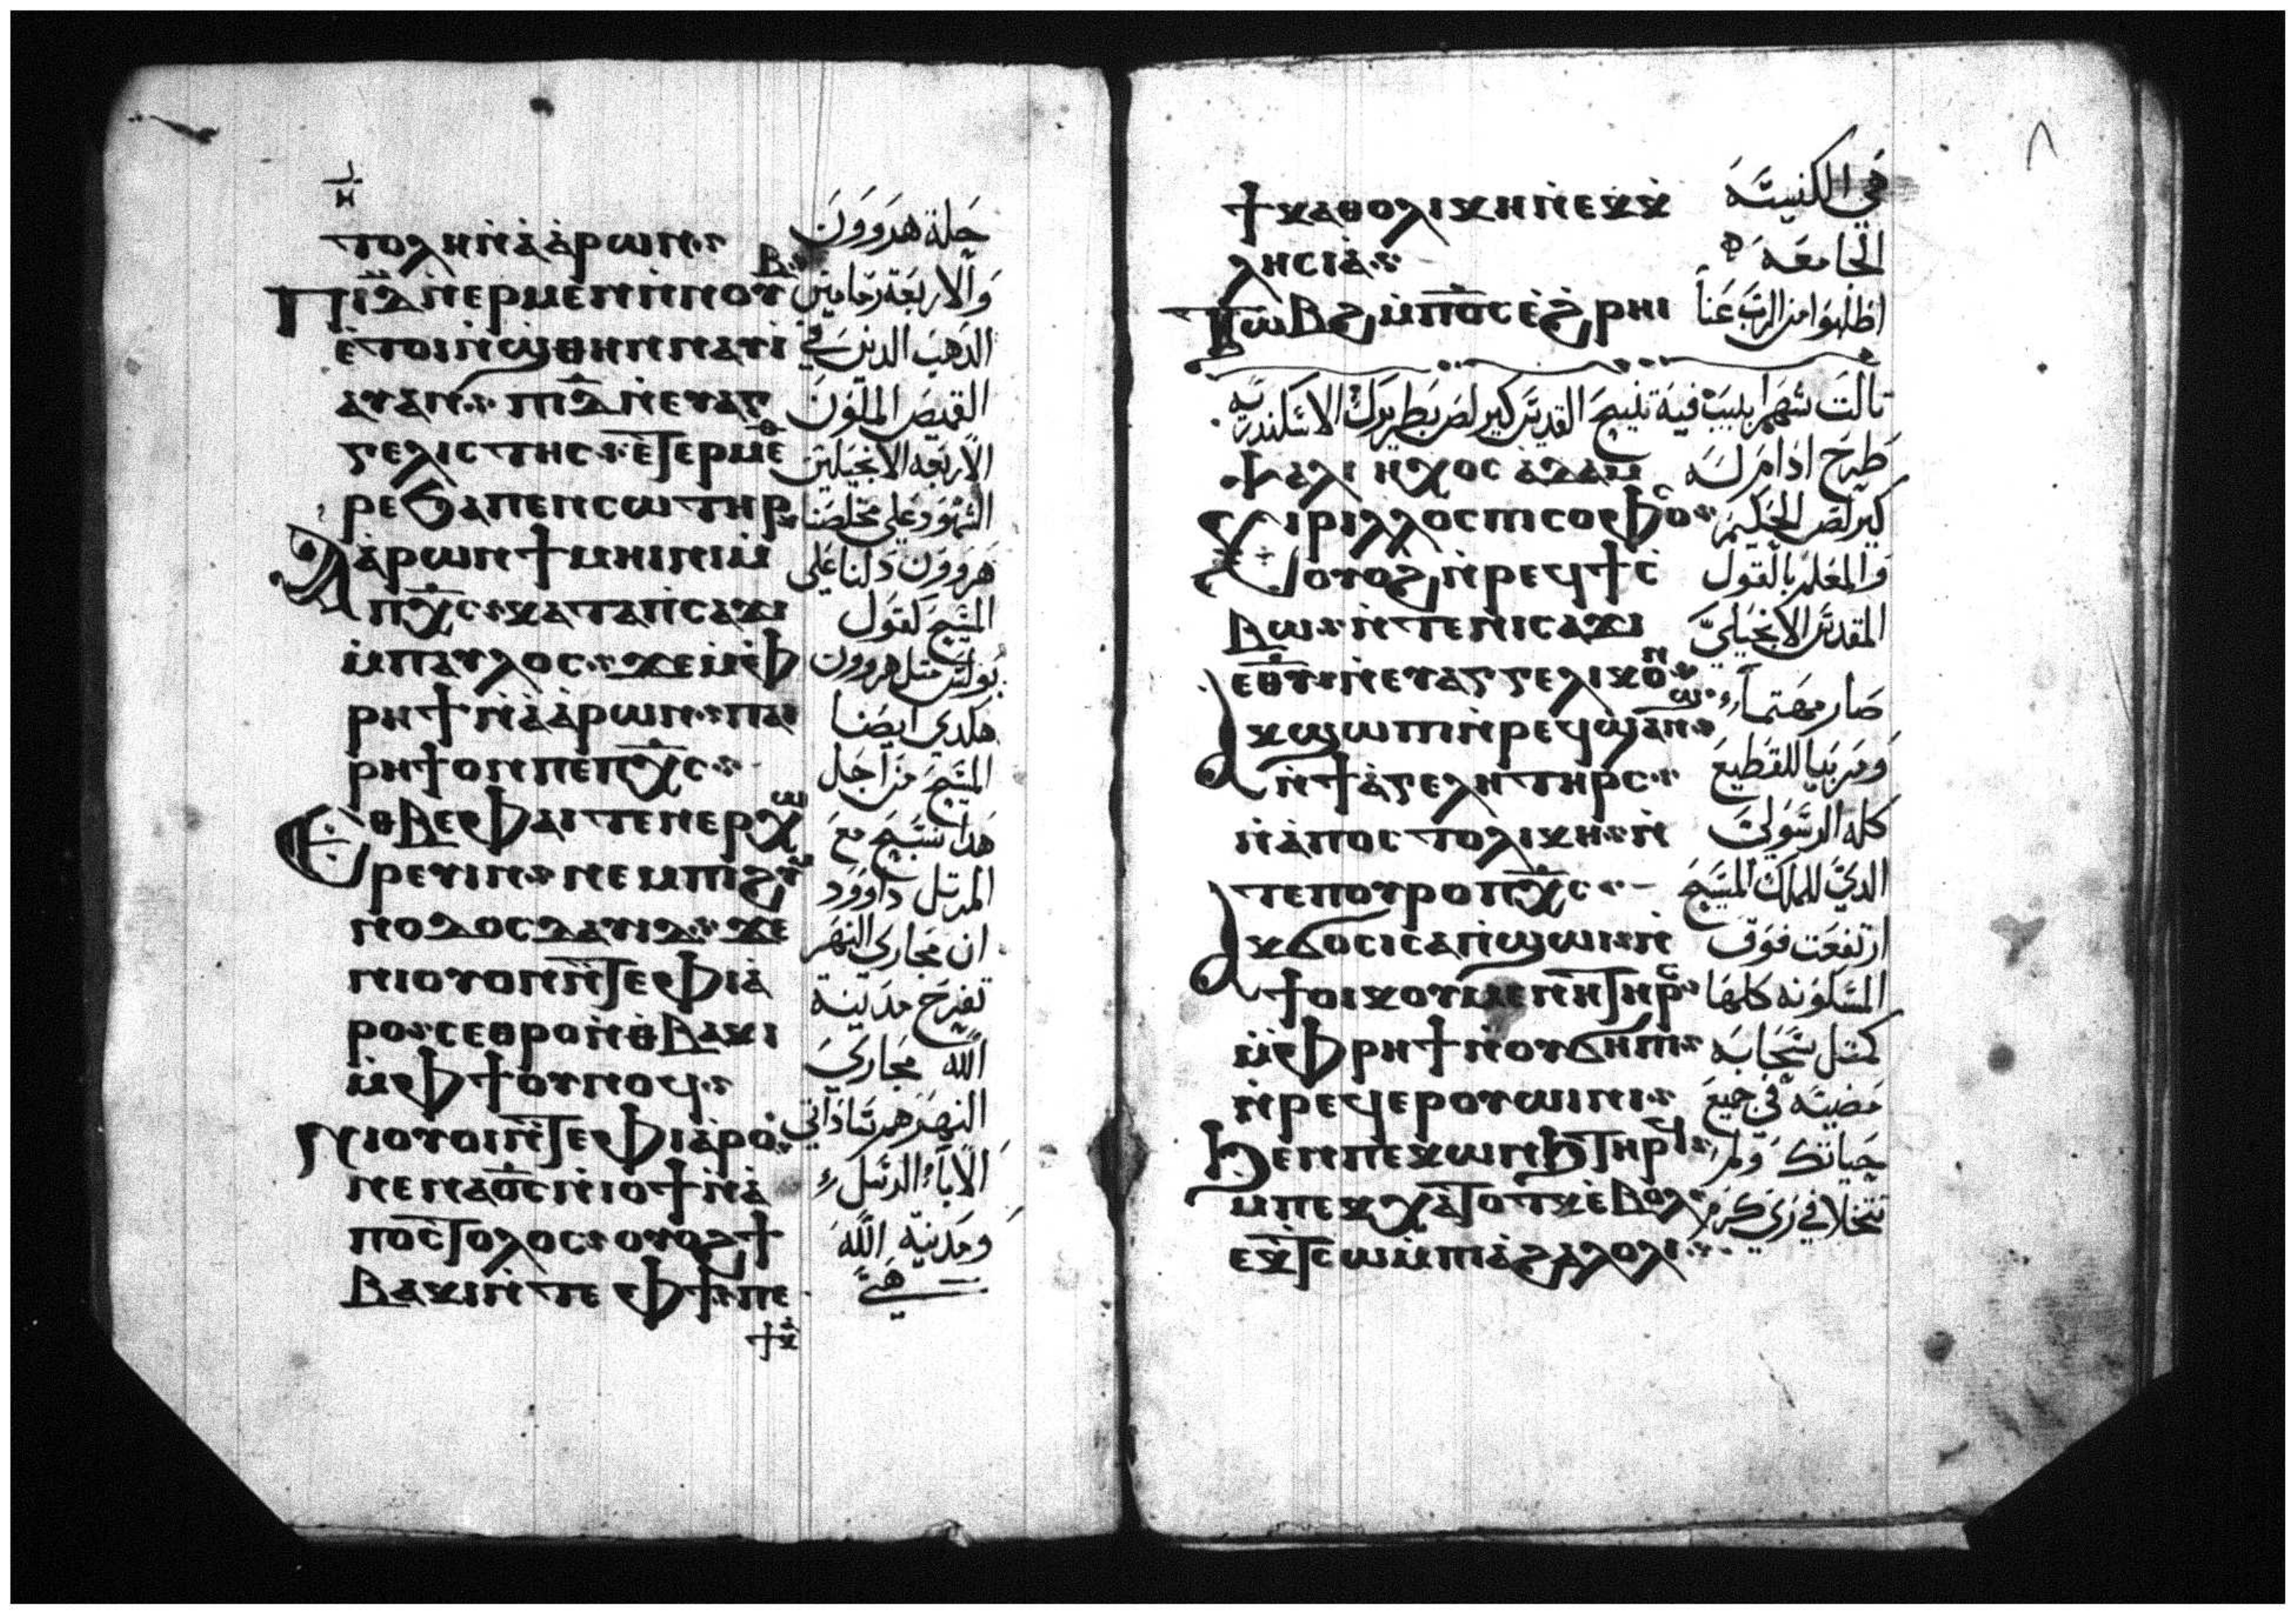 ⲏ
ⲧⲟⲗⲏⲛ̀ⲁ̀ⲁ̀ⲣⲱⲛ
حلة هروون
ⲡⲓⲇ̅ⲛ̀ⲉⲣⲙⲉⲛⲛ̀ⲛⲟⲩⲃ
والاربعة رمامين
ⲉ̀ⲧⲟⲓⲛ̀ϣⲑⲏⲛⲛⲁⲩⲓ
الدهب الدين في
ⲁⲩⲁⲛ ⲡⲓⲇ̅ⲛ̀ⲉⲩⲁⲅ
القميص الملون
ⲅⲉⲗⲓⲥⲧⲏⲥ ⲉ̀ⲧⲉⲣⲙⲉⲑ
الاربعه الانجيليين
ⲣⲉϭⲁⲡⲉⲛⲥⲱⲧⲏⲣ
الشهود على مخلصنا
ⲁ̀ⲁⲣⲱⲛϯⲙⲏⲓⲛⲓⲙ̀
هروون دلنا على
ⲡⲭ̅ⲥ ⲕⲁⲧⲁⲡⲥⲁϫⲓ
المسيح كقول
ⲙ̀ⲡⲁⲩⲗⲟⲥ ϫⲉⲙ̀ⲫ
بولس متل هروون
ⲣⲏϯⲛ̀ⲁ̀ⲁ̀ⲣⲱⲛ ⲡⲁⲓ
هكدي ايضا
ⲣⲏϯⲟⲛⲡⲉⲡⲭ̅ⲥ
المسيح من اجل
ⲉⲑⲃⲉⲫⲁⲓⲧⲉⲛⲉⲣⲭⲱ
هدا نسبح مع
ⲣⲉⲩⲓⲛ ⲛⲉⲙⲡⲓϩⲩⲙ
المرتل داوود
ⲛⲟⲇⲟⲥⲇⲁⲩⲓⲇ ϫⲉ
ان مجاري النهر
ⲛⲓⲟⲩⲟⲓⲛ̀ⲧⲉⲫⲓⲁ
تفرح مدينة
ⲣⲟ ⲥⲉⲑⲣⲟⲛ̀ⲑⲃⲁⲕⲓ
الله مجاري
ⲙ̀ⲫϯⲟⲩⲛⲟϥ
النهر هم سادآتي
ⲛⲓⲟⲩⲟⲓⲛ̀ⲧⲉⲫⲓⲁ̀ⲣⲟ
الآباء الرسل
ⲛⲉⲛⲁϭ̅ⲥⲛ̀ⲓⲟϯⲛ̀ⲁ̀
ومدينة الله
ⲡⲟⲥⲧⲟⲗⲟⲥ ⲟⲩⲟϩϯ
هي
ⲃⲁⲕⲓⲛ̀ⲧⲉⲫϯ ⲡⲉ
ϯⲕ
٨
ϯⲕⲁⲑⲟⲗⲓⲕⲏⲛ̀ⲉⲕⲕ
في الكنيسة
ⲗⲏⲥⲓⲁ̀
الجامعة
ⲧⲱⲃϩⲙ̀ⲡϭ̅ⲥⲉ̀ϩⲣⲏⲓ
اطلبوا من الرب عنا
تالت شهر ابيب فيه تنيح القديس كيرلص بطريرك الاسكندريه
ⲯⲁⲗⲓ ⲏⲭⲟⲥ ⲁ̀ⲇⲁⲙ
طرح ادام له
ⲕⲓⲣⲓⲗⲗⲟⲥⲡⲓⲥⲟⲫⲟⲥ
كيرلص الحكيم
ⲟⲩⲟϩⲛ̀ⲣⲉϥϯⲥ̀
والمعلم بالقول
ⲃⲱ ⲛ̀ⲧⲉⲛⲓⲥⲁϫⲓ
المقدس الانجيلي
ⲉⲑⲩ ⲛ̀ⲉⲩⲁⲅⲅⲉⲗⲓⲕⲟⲛ
صار مهتماً
ⲁⲕϣⲱⲡⲓⲛ̀ⲣⲉϥϣⲁⲛϣ
ومربيا للقطيع
ⲛ̀ϯⲁ̀ⲅⲉⲗⲏⲧⲏⲣⲥ
كله الرسولي
ⲛ̀ⲁ̀ⲡⲟⲥⲧⲟⲗⲓⲕⲏ ⲛ̀
الدي للملك المسيح
ⲧⲉⲡⲟⲩⲣⲟⲡⲭ̅ⲥ
ارتفعت فوق
ⲁⲕϭⲟⲥⲓⲥⲁⲡ̀ϣⲱⲓⲛ̀
المسكونه كلها
ϯⲟⲓⲕⲟⲩⲙⲉⲛⲏⲧⲏⲣⲥ
كمتل سحابه
ⲙ̀ⲫⲣⲏϯⲛ̀ⲟⲩϭⲏⲡⲓ
مضيئه في جميع
ⲛ̀ⲣⲉϥⲉⲣⲟⲩⲱⲓⲛⲓ
حياتك ولم
ϧⲉⲛⲡⲉⲕⲱⲛϧⲧⲏⲣϥ
ⲙ̀ⲡⲉⲕⲭⲁ̀ⲧⲟⲧⲕⲉ̀ⲃⲟⲗ
تتخلا في زي كرم
ⲉⲕ̀ⲧⲥⲱⲙ̀ⲡⲓⲁ̀ϩⲁⲗⲟⲗⲓ